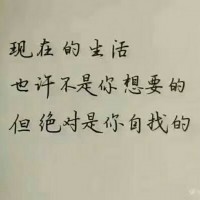 现在的生活
也许不是你想要的
但绝对是你自找的